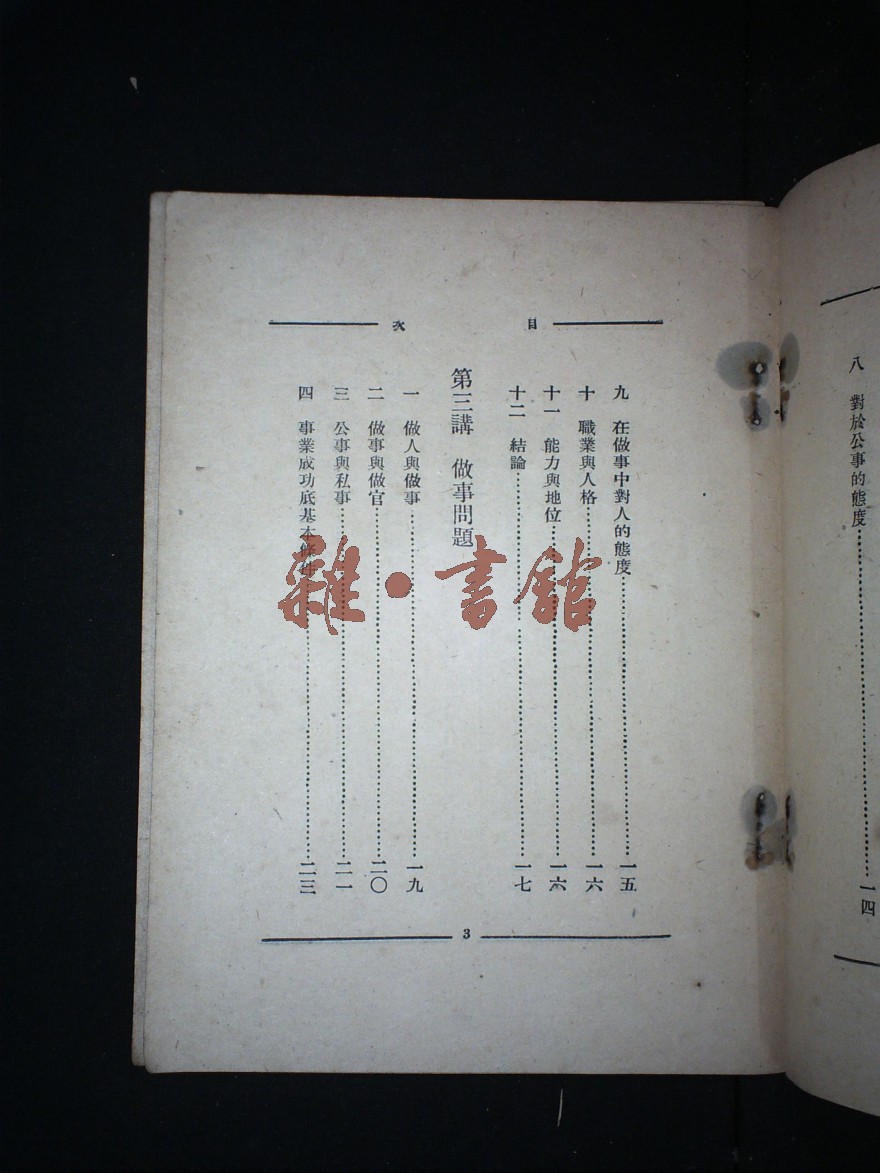 八 對於公事的態度……一四
目 次
九 在做事中對人的態度……一五
十 職業與人格……一六
十一 能力與地位……一六
十二 結論……一七
第三講 做事問題
一 做人與做事……一九
二 做事與做官……二〇
三 公事與私事……二一
四 事業成功底基本條件……二三
3
雜·書館